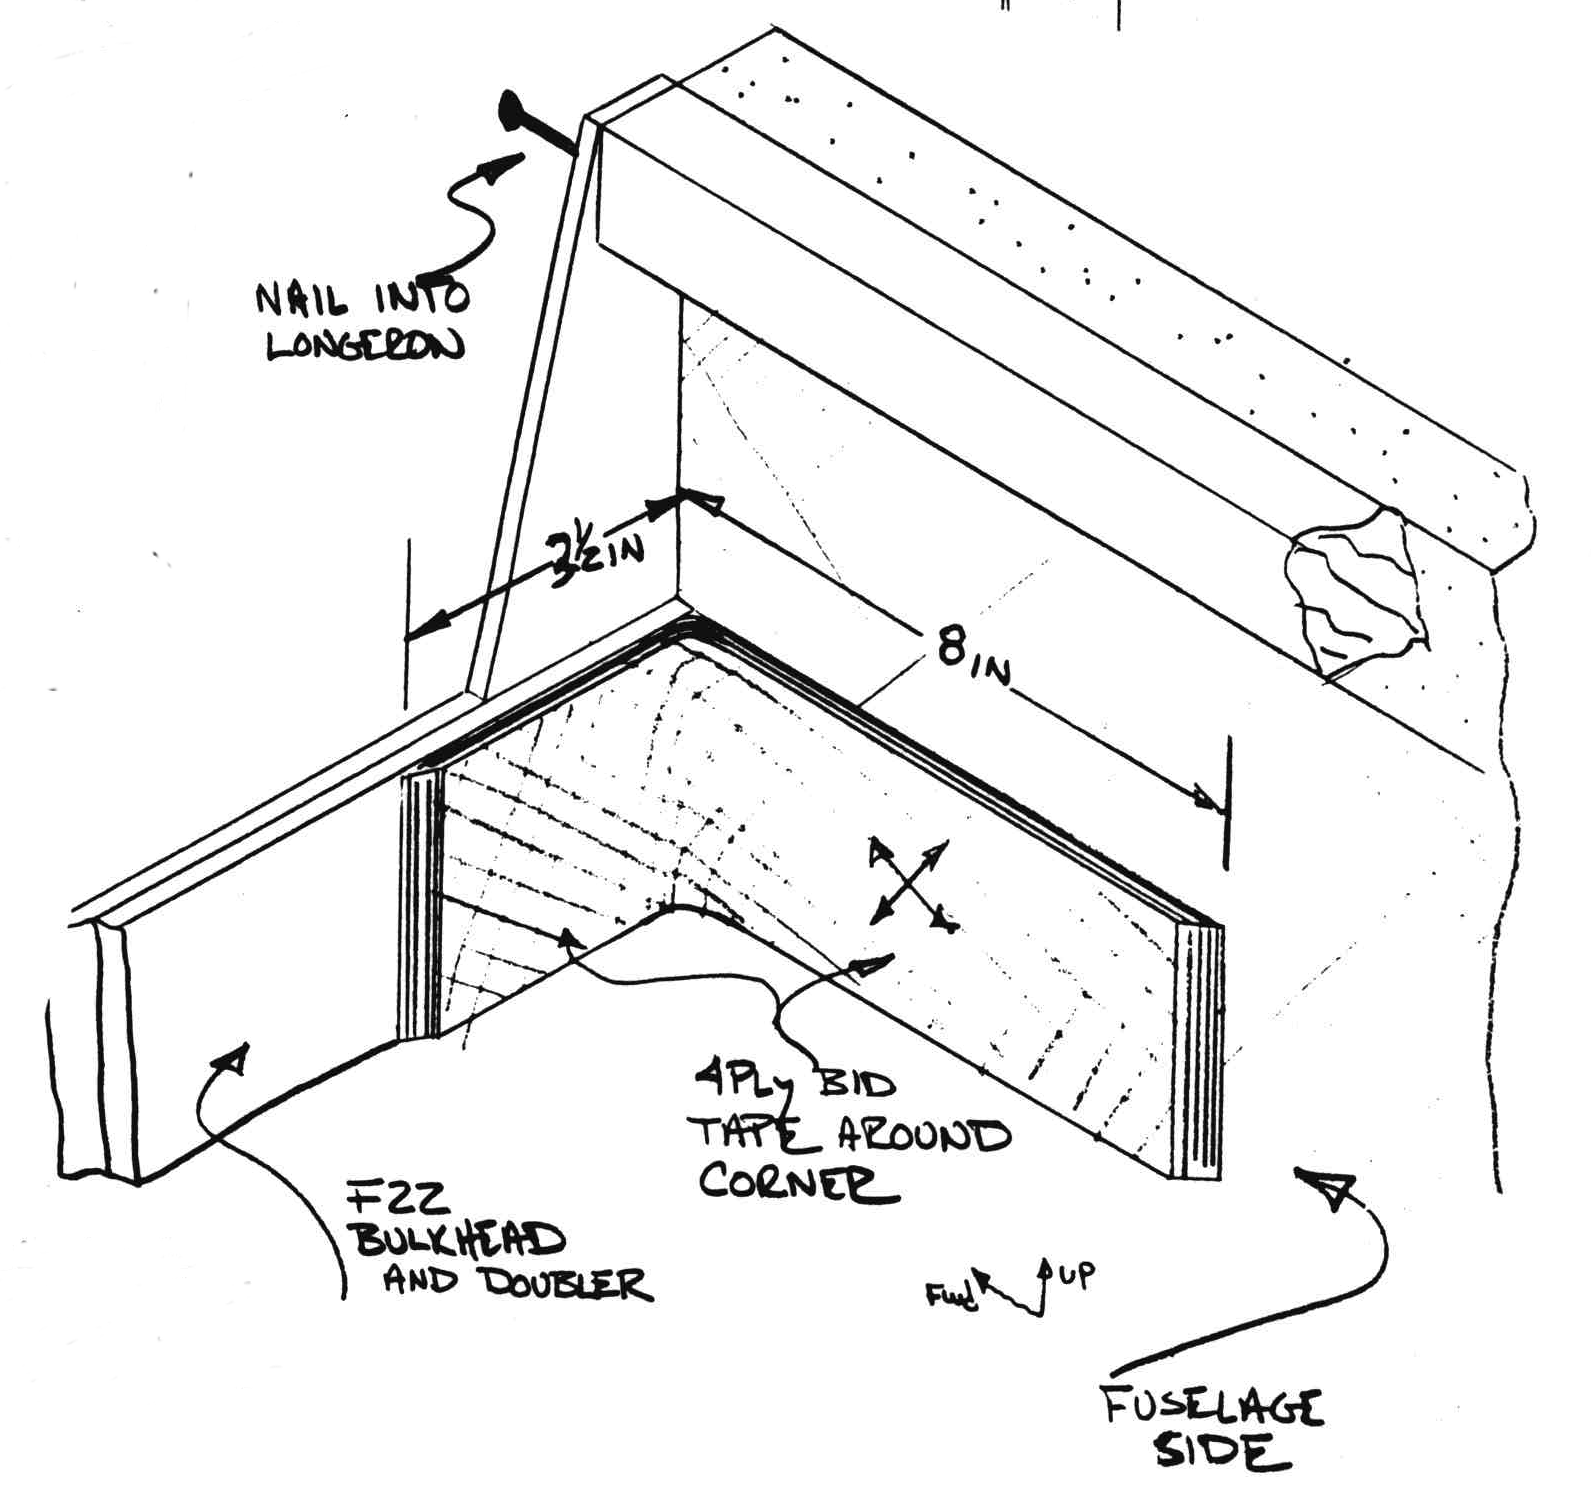 NAIL INTO
LONGERON
3½ IN
8 IN
4 PLY BID
TAPE AROUND
CORNER
F22
BULKHEAD
AND DOUBLER
Fwd
UP
FUSELAGE
SIDE